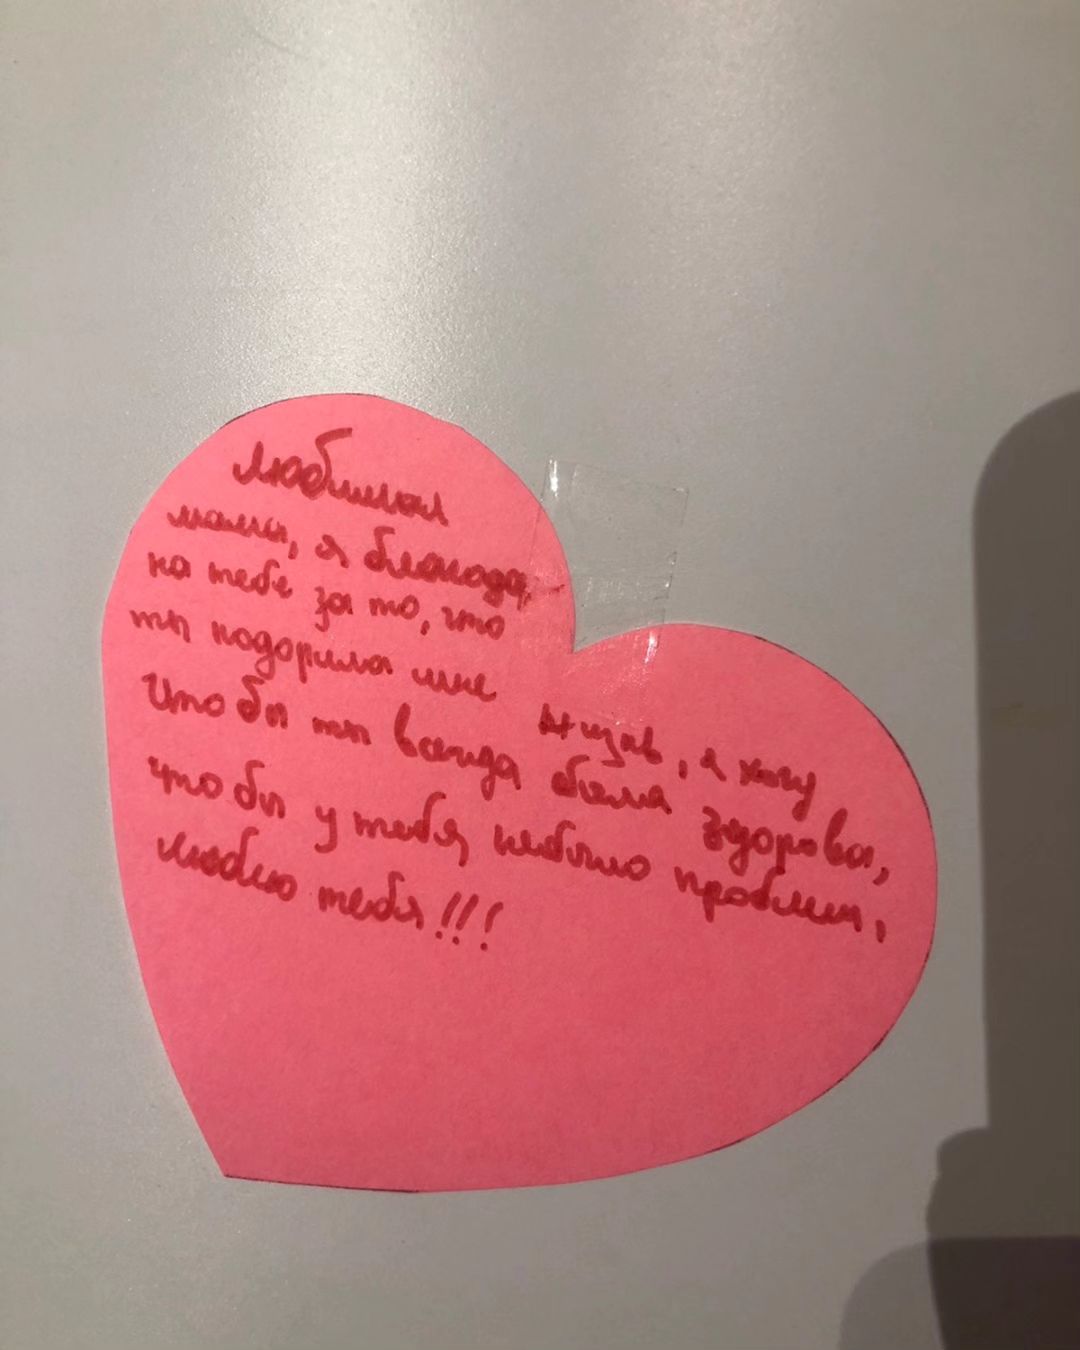 Любимая
мама, я благода
на тебе за то, что
ты подарила мне
жизнь, я хочу
Что бы ты всегда была здорова,
что бы у тебя небыло проблем,
люблю тебя!!!